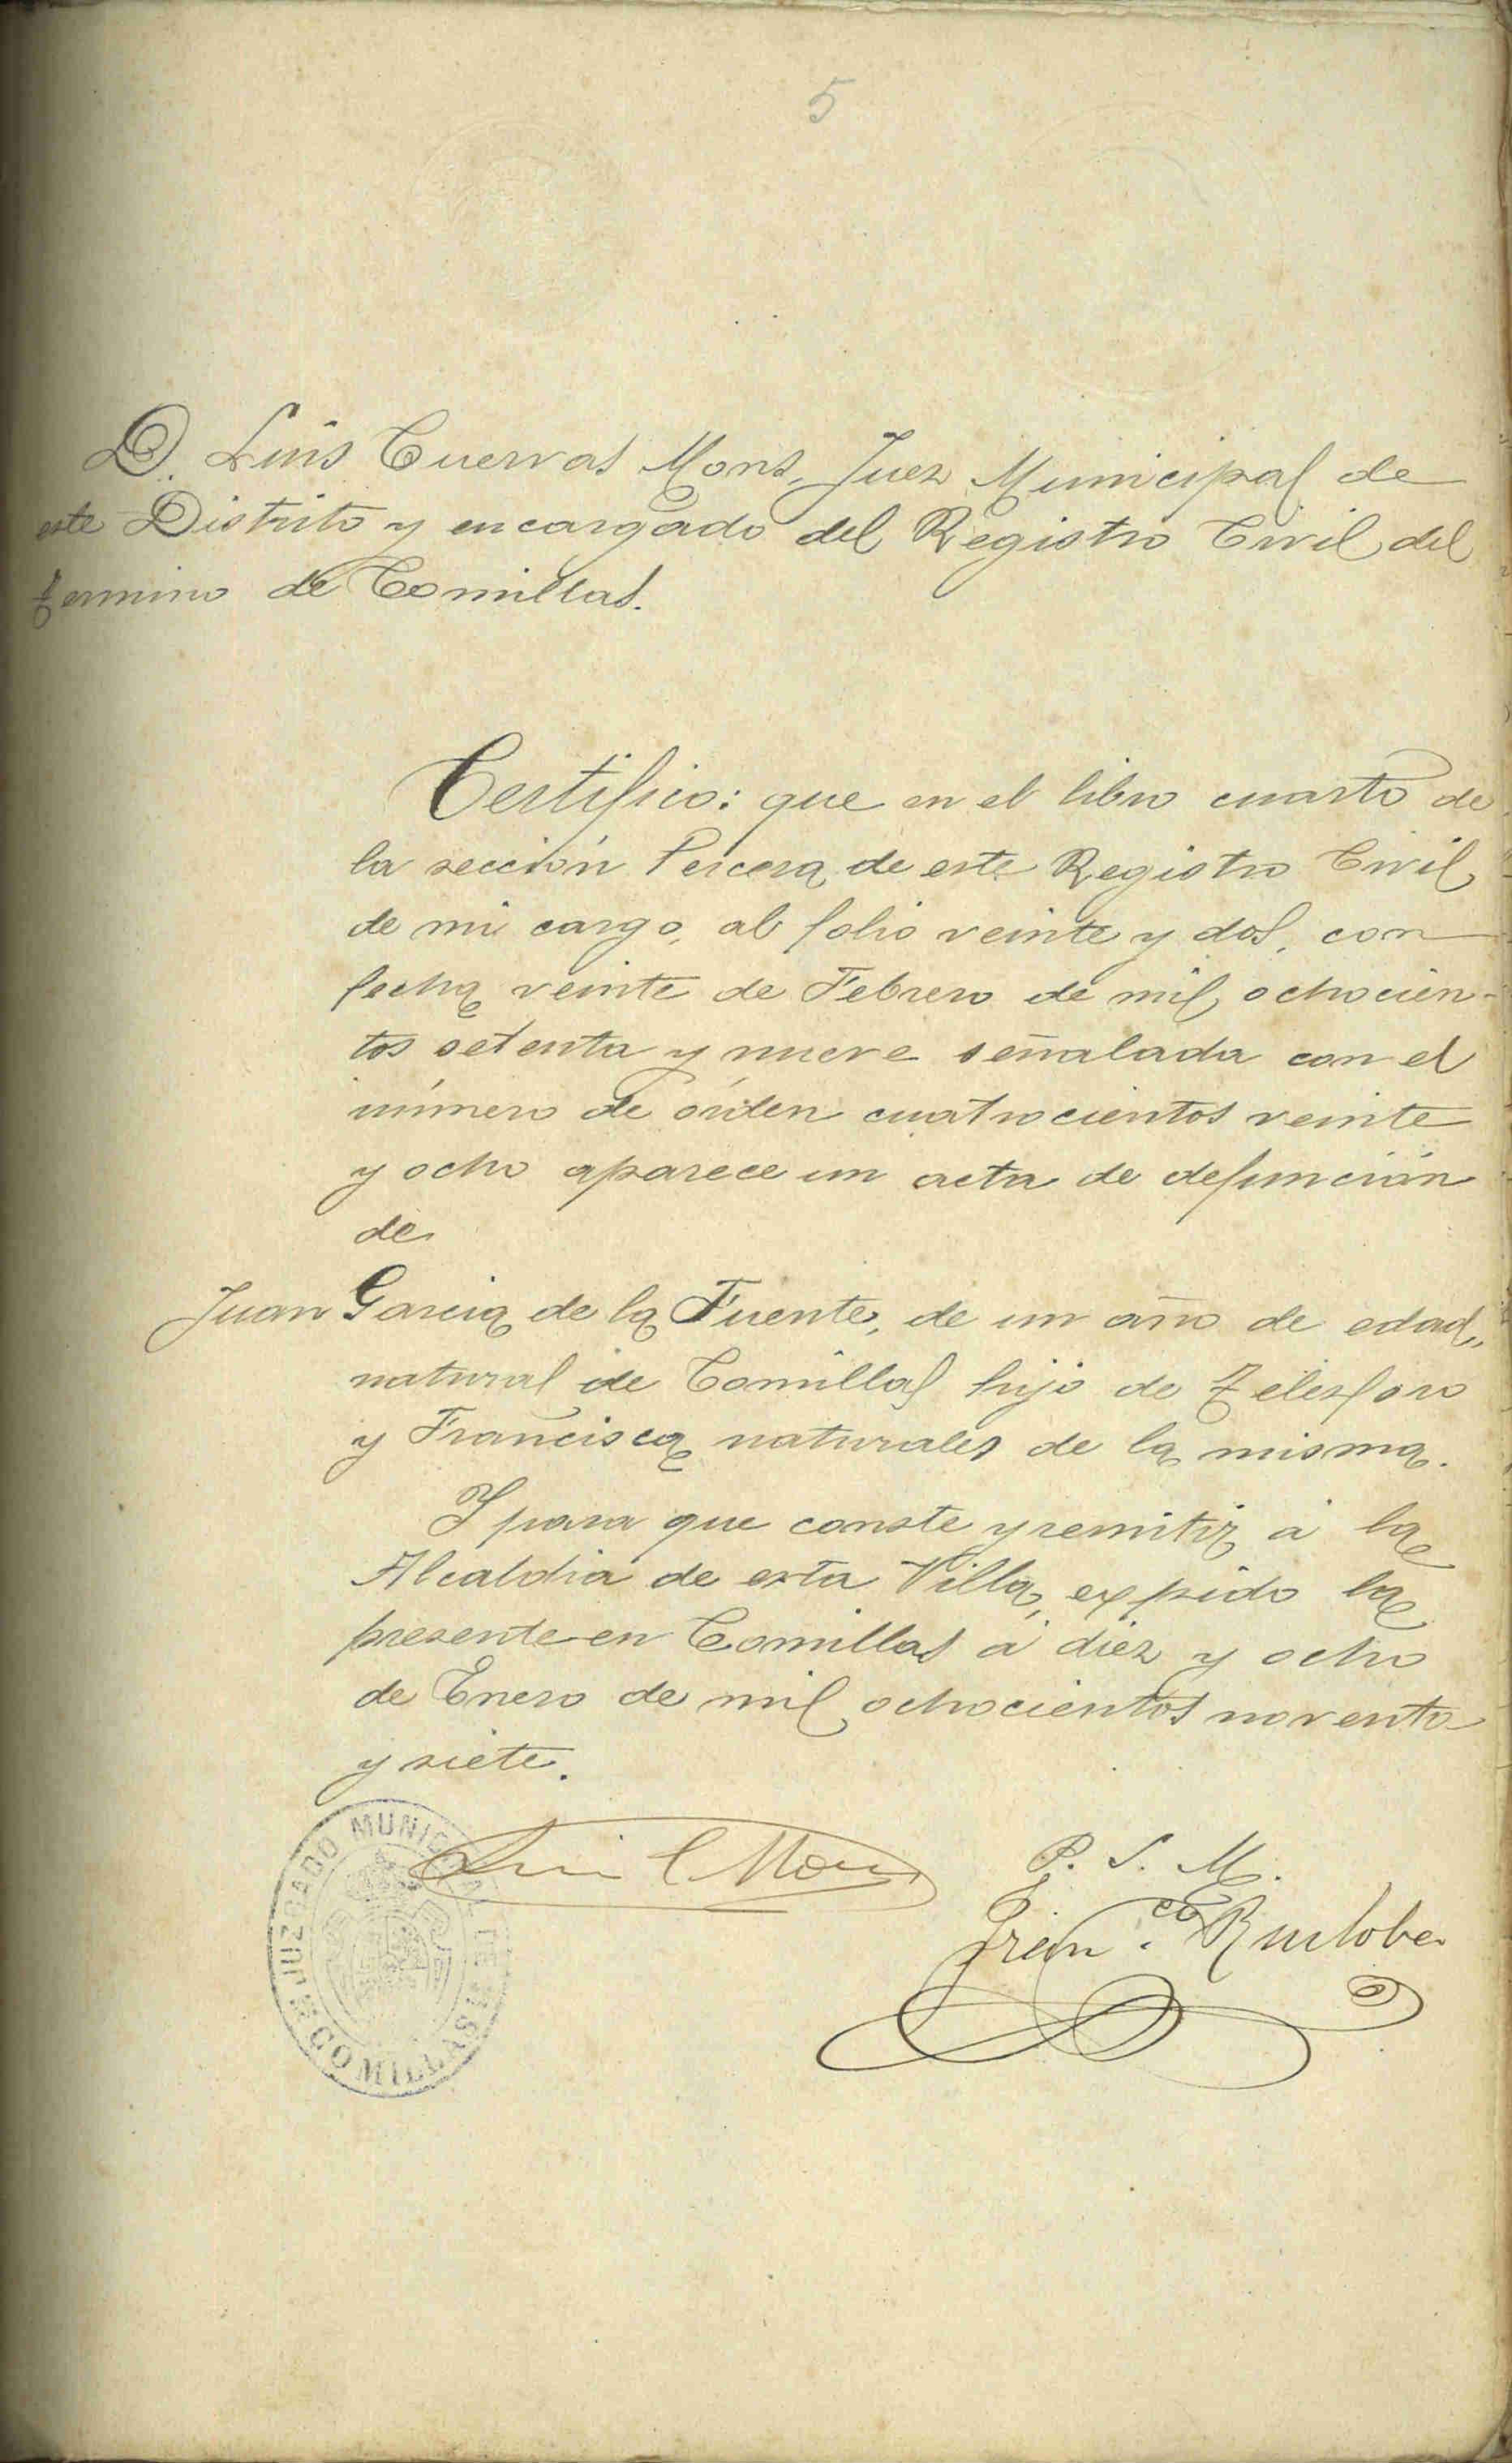 5
D. Luis Cuervas Mons, Juez Municipal de
este Distrito y encargado del Registro Civil del
termino de Comillas.
Certifico: que en el libro cuarto de
la sección tercera de este Registro Civil
de mi cargo, al folio veinte y dos, con
fecha veinte de Febrero de mil ochocien-
tos setenta y nueve señalada con el
número de órden cuatrocientos veinte
y ocho aparece un acta de defunción
de
Juan Garcia de la Fuente, de un año de edad,
natural de Comillas hijo de Telesforo
y Francisca naturales de la misma.
Y para que conste y remitir á la
Alcaldia de esta Villa, expido la
presente en Comillas á diez y ocho
de Enero de mil ochocientos noventa
y siete.
Luis C Mons
P. S. M.
Fran.co Ruilobe
JUZGADO MUNICIPAL DE COMILLAS